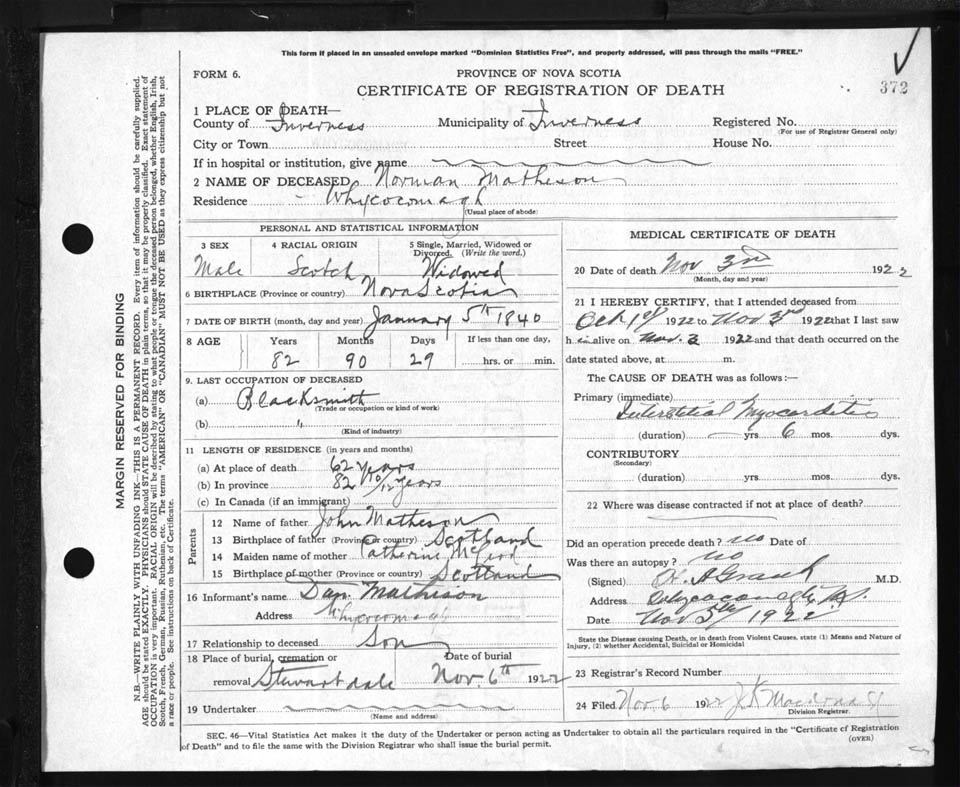 This form if placed in an unsealed envelope marked "Dominion Statistics Free", and properly addressed, will pass through the mails "FREE."
FORM 6.
PROVINCE OF NOVA SCOTIA
CERTIFICATE OF REGISTRATION OF DEATH
372
1 PLACE OF DEATH—
County of Inverness Municipality of Inverness Registered No.
(For use of Registrar General only)
City or Town Street House No.
If in hospital or institution, give name
2 NAME OF DECEASED Norman Matheson
Residence Whycocomagh
(Usual place of abode)
PERSONAL AND STATISTICAL INFORMATION
3 SEX 4 RACIAL ORIGIN 5 Single, Married, Widowed or Divorced. (Write the word.)
Male Scotch Widowed
6 BIRTHPLACE (Province or country) Nova Scotia
7 DATE OF BIRTH (month, day and year) January 5th 1840
8 AGE Years Months Days If less than one day,
82 90 29 hrs. or min.
9. LAST OCCUPATION OF DECEASED
(a) Blacksmith
(Trade or occupation or kind of work)
(b) "
(Kind of industry)
11 LENGTH OF RESIDENCE (in years and months)
(a) At place of death 62 years
(b) In province 82 10/12 years
(c) In Canada (if an immigrant)
Parents
12 Name of father John Matheson
13 Birthplace of father (Province or country) Scotland
14 Maiden name of mother Catherine McLeod
15 Birthplace of mother (Province or country) Scotland
16 Informant's name Dan Matheson
Address Whycocomagh
17 Relationship to deceased Son
18 Place of burial, cremation or removal Stewartdale Date of burial Nov. 6th 1922
19 Undertaker
(Name and address)
MEDICAL CERTIFICATE OF DEATH
20 Date of death Nov 3rd 1922
(Month, day and year)
21 I HEREBY CERTIFY, that I attended deceased from
Oct 1st 1922 to Nov 3rd 1922 that I last saw
h im alive on Nov 3 1922 and that death occurred on the
date stated above, at m.
The CAUSE OF DEATH was as follows:—
Primary (immediate)
Interstitial Myocarditis
(duration) yrs 6 mos. dys.
CONTRIBUTORY
(Secondary)
(duration) yrs. mos. dys.
22 Where was disease contracted if not at place of death?
Did an operation precede death? no Date of
Was there an autopsy? no
(Signed) A Grant M.D.
Address Whycocomagh N.S.
Date Nov 5th 1922
State the Disease causing Death, or in death from Violent Causes, state (1) Means and Nature of
Injury, (2) whether Accidental, Suicidal or Homicidal
23 Registrar's Record Number
24 Filed Nov. 6 1922 J K
Division Registrar.
SEC. 46—Vital Statistics Act makes it the duty of the Undertaker or person acting as Undertaker to obtain all the particulars required in the "Certificate of Registration
of Death" and to file the same with the Division Registrar who shall issue the burial permit.
(OVER)
MARGIN RESERVED FOR BINDING
N.B.—WRITE PLAINLY WITH UNFADING INK—THIS IS A PERMANENT RECORD. Every item of information should be carefully supplied.
AGE should be stated EXACTLY. PHYSICIANS should STATE CAUSE OF DEATH in plain terms, so that it may be properly classified. Exact statement of
OCCUPATION is very important. RACIAL ORIGIN will be described by stating to what people or tongue the deceased person belonged, whether English, Irish,
Scotch, French, German, Russian, Ruthenian, etc. The terms "AMERICAN" OR "CANADIAN" MUST NOT BE USED as they express citizenship but not
a race or people. See instructions on back of Certificate.